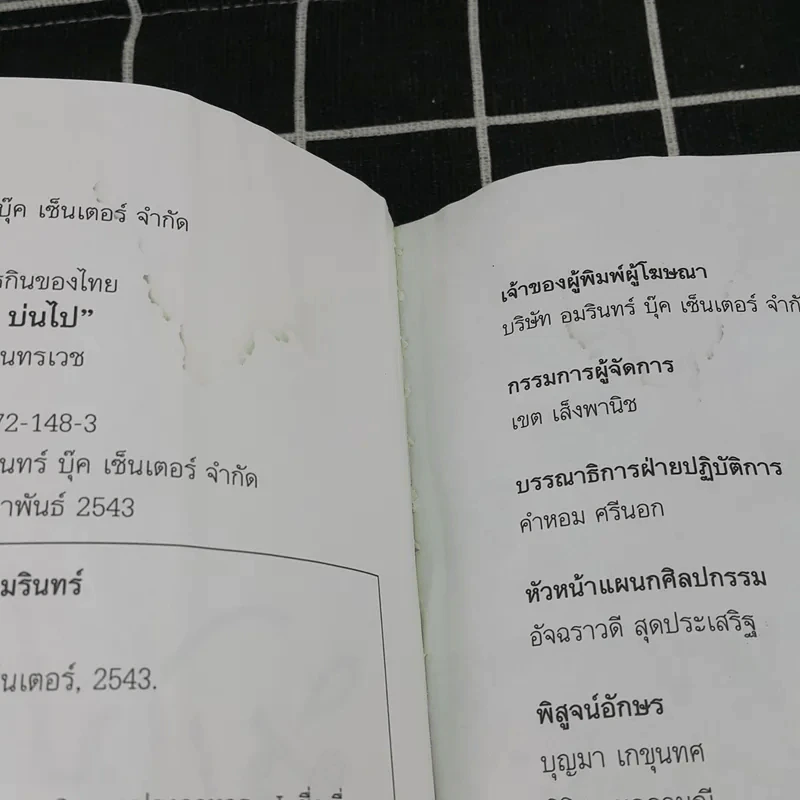 บุ๊ค เซ็นเตอร์ จำกัด
กินของไทย
บ่นไป”
72-148-3
บุ๊ค เซ็นเตอร์ จำกัด
2543
2543.
เจ้าของผู้พิมพ์ผู้โฆษณา
บริษัท อมรินทร์ บุ๊ค เซ็นเตอร์
กรรมการผู้จัดการ
เขต เส็งพานิช
บรรณาธิการฝ่ายปฏิบัติการ
คำหอม ศรีนอก
หัวหน้าแผนกศิลปกรรม
อัจฉราวดี สุดประเสริฐ
พิสูจน์อักษร
บุญมา เกขุนทศ